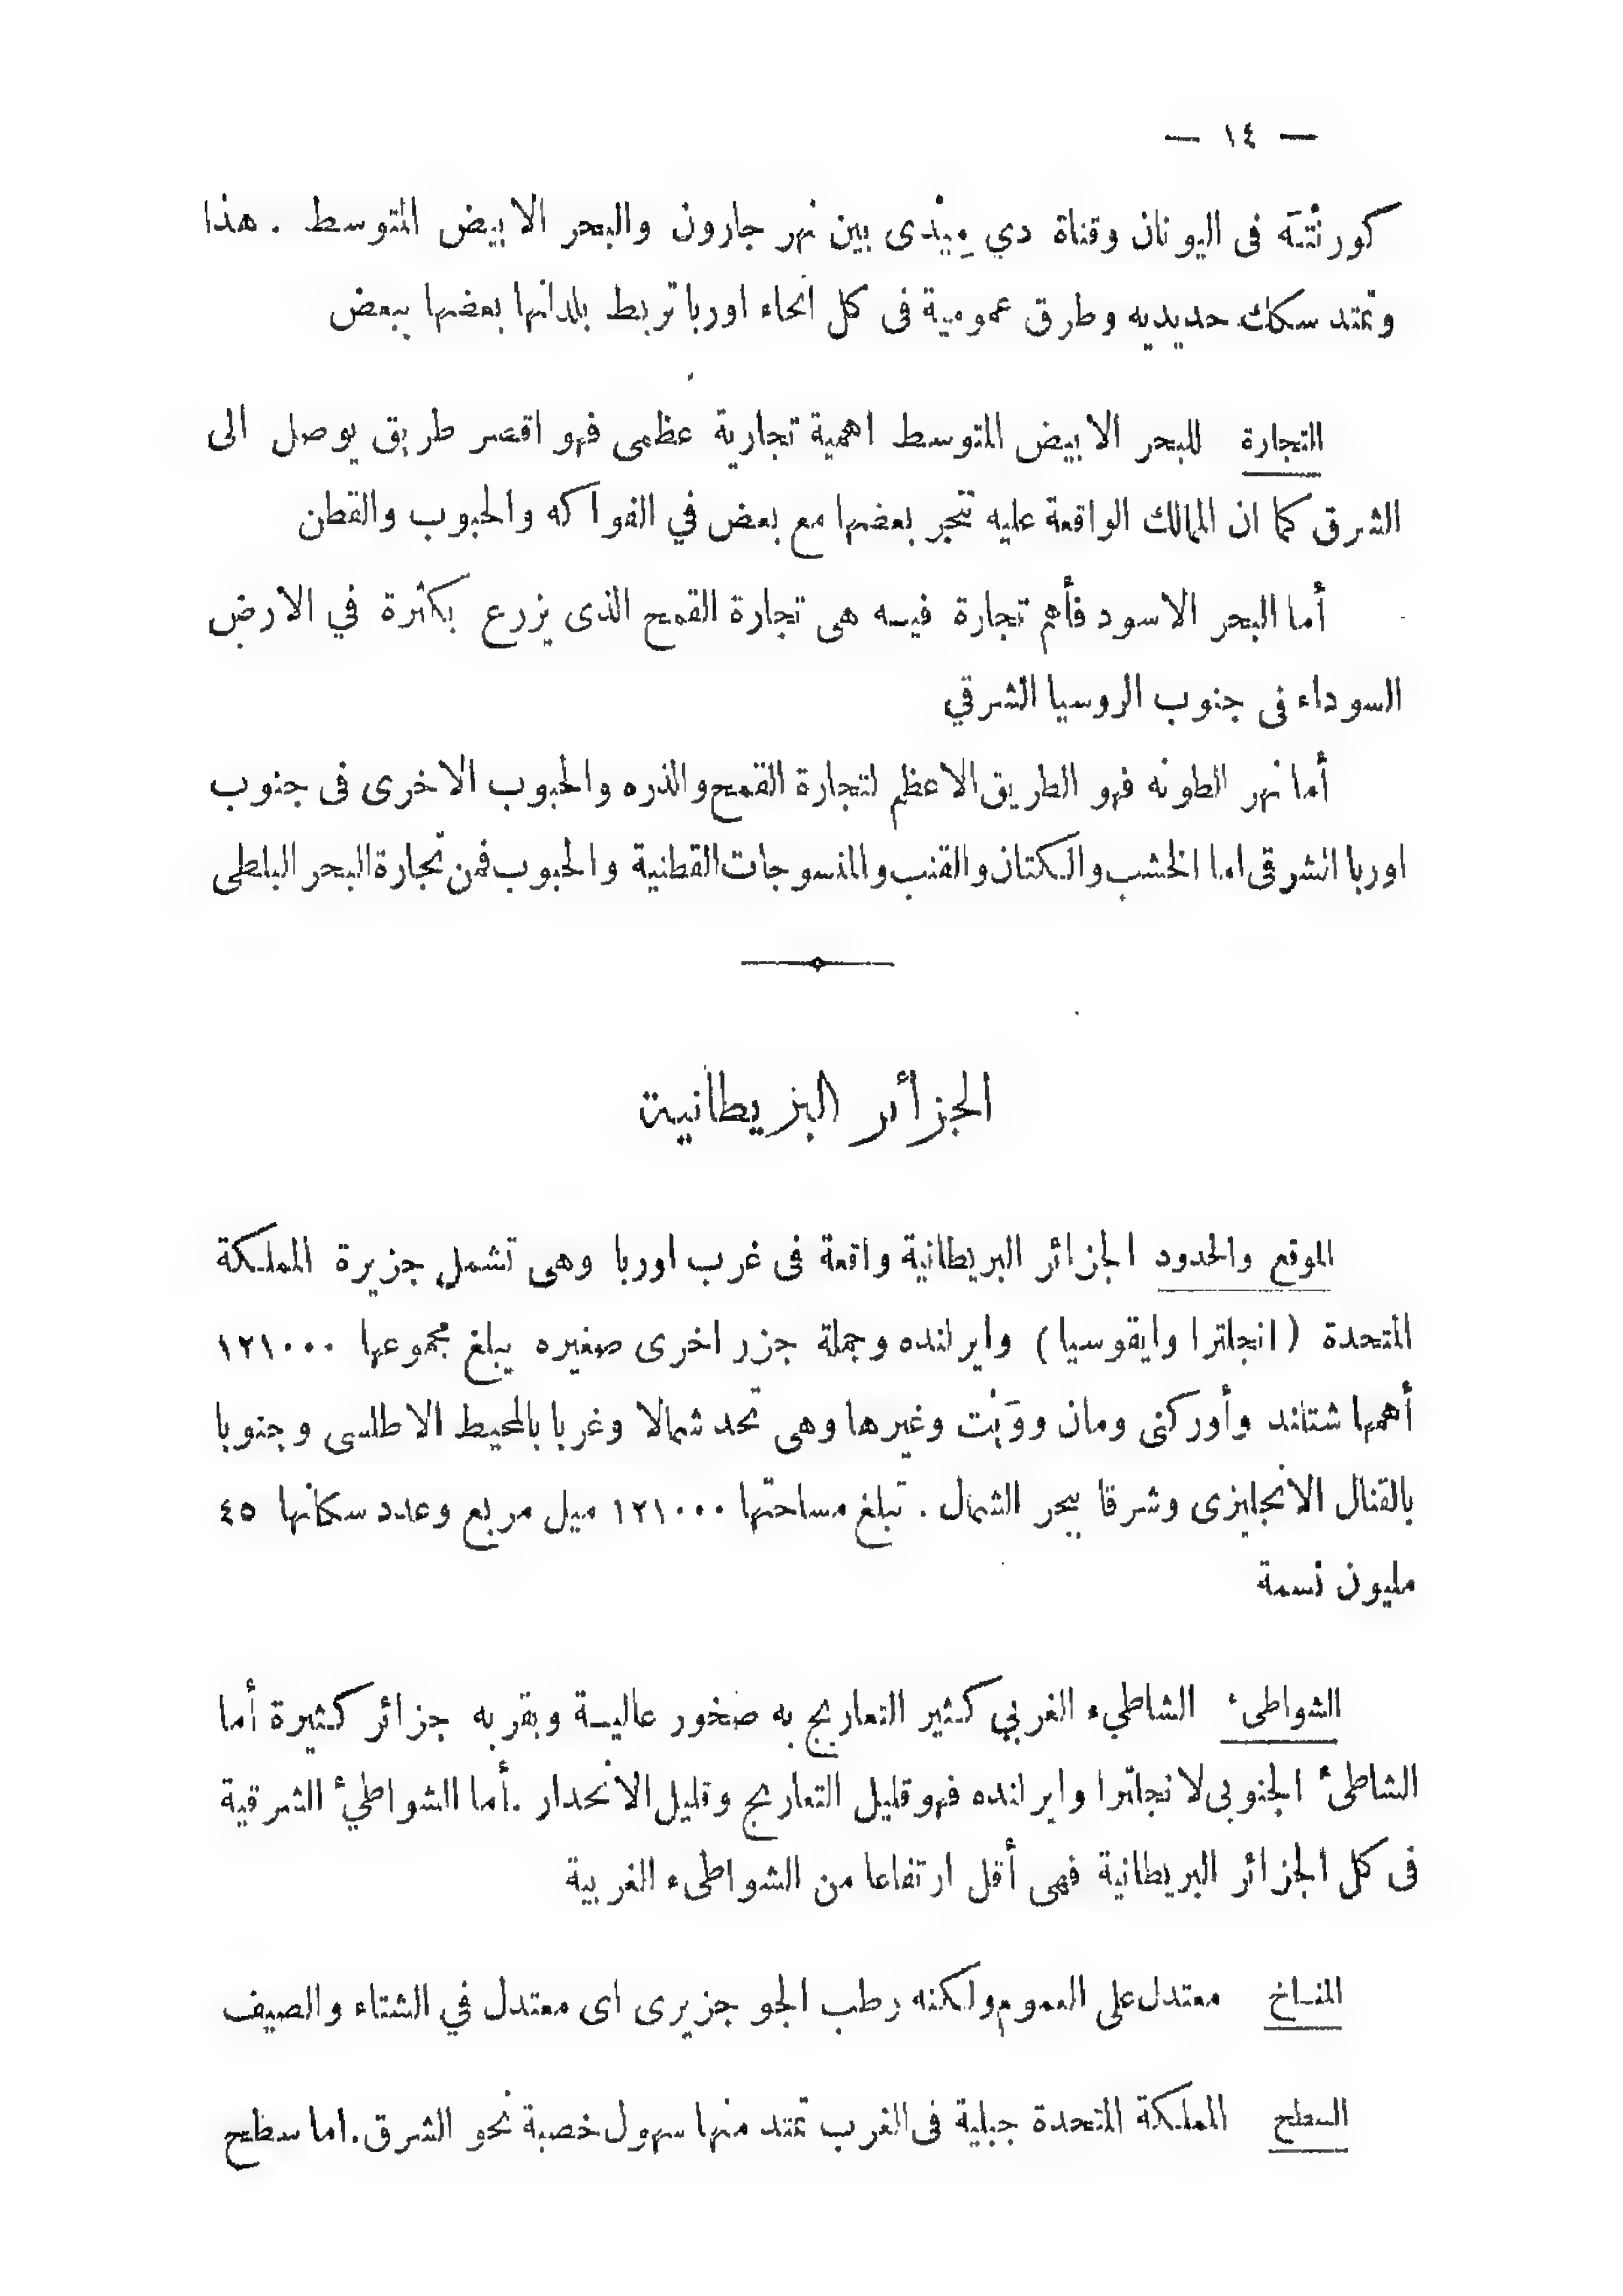 — ١٤ —
كورنْتَه فى اليونان وقناة دي مِيْدى بين نهر جارون والبحر الابيض المتوسط . هذا
وتمتد سكك حديديه وطرق عمومية فى كل انحاء اوربا تربط بلدانها بعضها ببعض
التجارة للبحر الابيض المتوسط اهمية تجارية عظمى فهو اقصر طريق يوصل الى
الشرق كما ان الممالك الواقعة عليه تتجر بعضها مع بعض في الفواكه والحبوب والقطن
أما البحر الاسود فأهم تجارة فيه هى تجارة القمح الذى يزرع بكثرة في الارض
السوداء فى جنوب الروسيا الشرقي
أما نهر الطونه فهو الطريق الاعظم لتجارة القمح والذره والحبوب الاخرى فى جنوب
اوربا الشرقى اما الخشب والكتان والقنب والمنسوجات القطنية والحبوب فمن تجارة البحر البلطى
الجزائر البريطانية
الموقع والحدود الجزائر البريطانية واقعة فى غرب اوربا وهى تشمل جزيرة المملكة
المتحدة (انجلترا وايقوسيا) وايرلنده وجملة جزر اخرى صغيره يبلغ مجموعها ١٢١٠٠٠
أهمها شتلند وأوركنى ومان ووَيْت وغيرها وهى تحد شمالا وغربا بالمحيط الاطلسى وجنوبا
بالقنال الانجليزى وشرقا ببحر الشمال . تبلغ مساحتها ١٢١٠٠٠ ميل مربع وعدد سكانها ٤٥
مليون نسمة
الشواطىء الشاطيء الغربي كثير التعاريج به صخور عالية وبقربه جزائر كثيرة أما
الشاطىء الجنوبى لانجلترا وايرلنده فهو قليل التعاريج وقليل الانحدار .أما الشواطيء الشرقية
فى كل الجزائر البريطانية فهى أقل ارتفاعا من الشواطىء الغربية
المناخ معتدل على العموم ولكنه رطب الجو جزيرى اى معتدل في الشتاء والصيف
السطح المملكة المتحدة جبلية فى الغرب تمتد منها سهول خصبة نحو الشرق. اما سطح